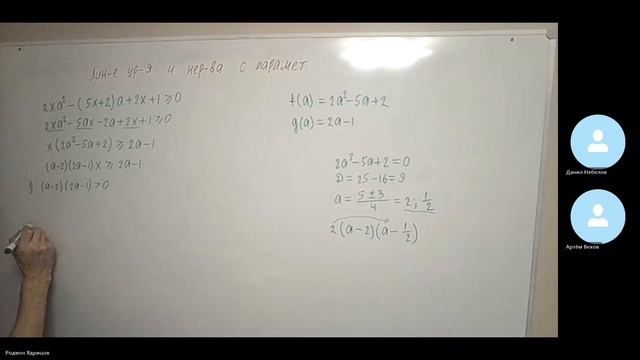 Лин-е ур-я и нер-ва с парамет.
2xa² - (5x+2)a + 2x + 1 ⩾ 0
2xa² - 5ax - 2a + 2x + 1 ⩾ 0
x(2a² - 5a + 2) ⩾ 2a - 1
(a-2)(2a-1)x ⩾ 2a - 1
(a-2)(2a-1) > 0
f(a) = 2a² - 5a + 2
g(a) = 2a - 1
2a² - 5a + 2 = 0
D = 25 - 16 = 9
a = (5 ± 3)/4 = 2; 1/2
2(a-2)(a - 1/2)
Данил Небелов
Артём Вехов
Родион Ядрицов